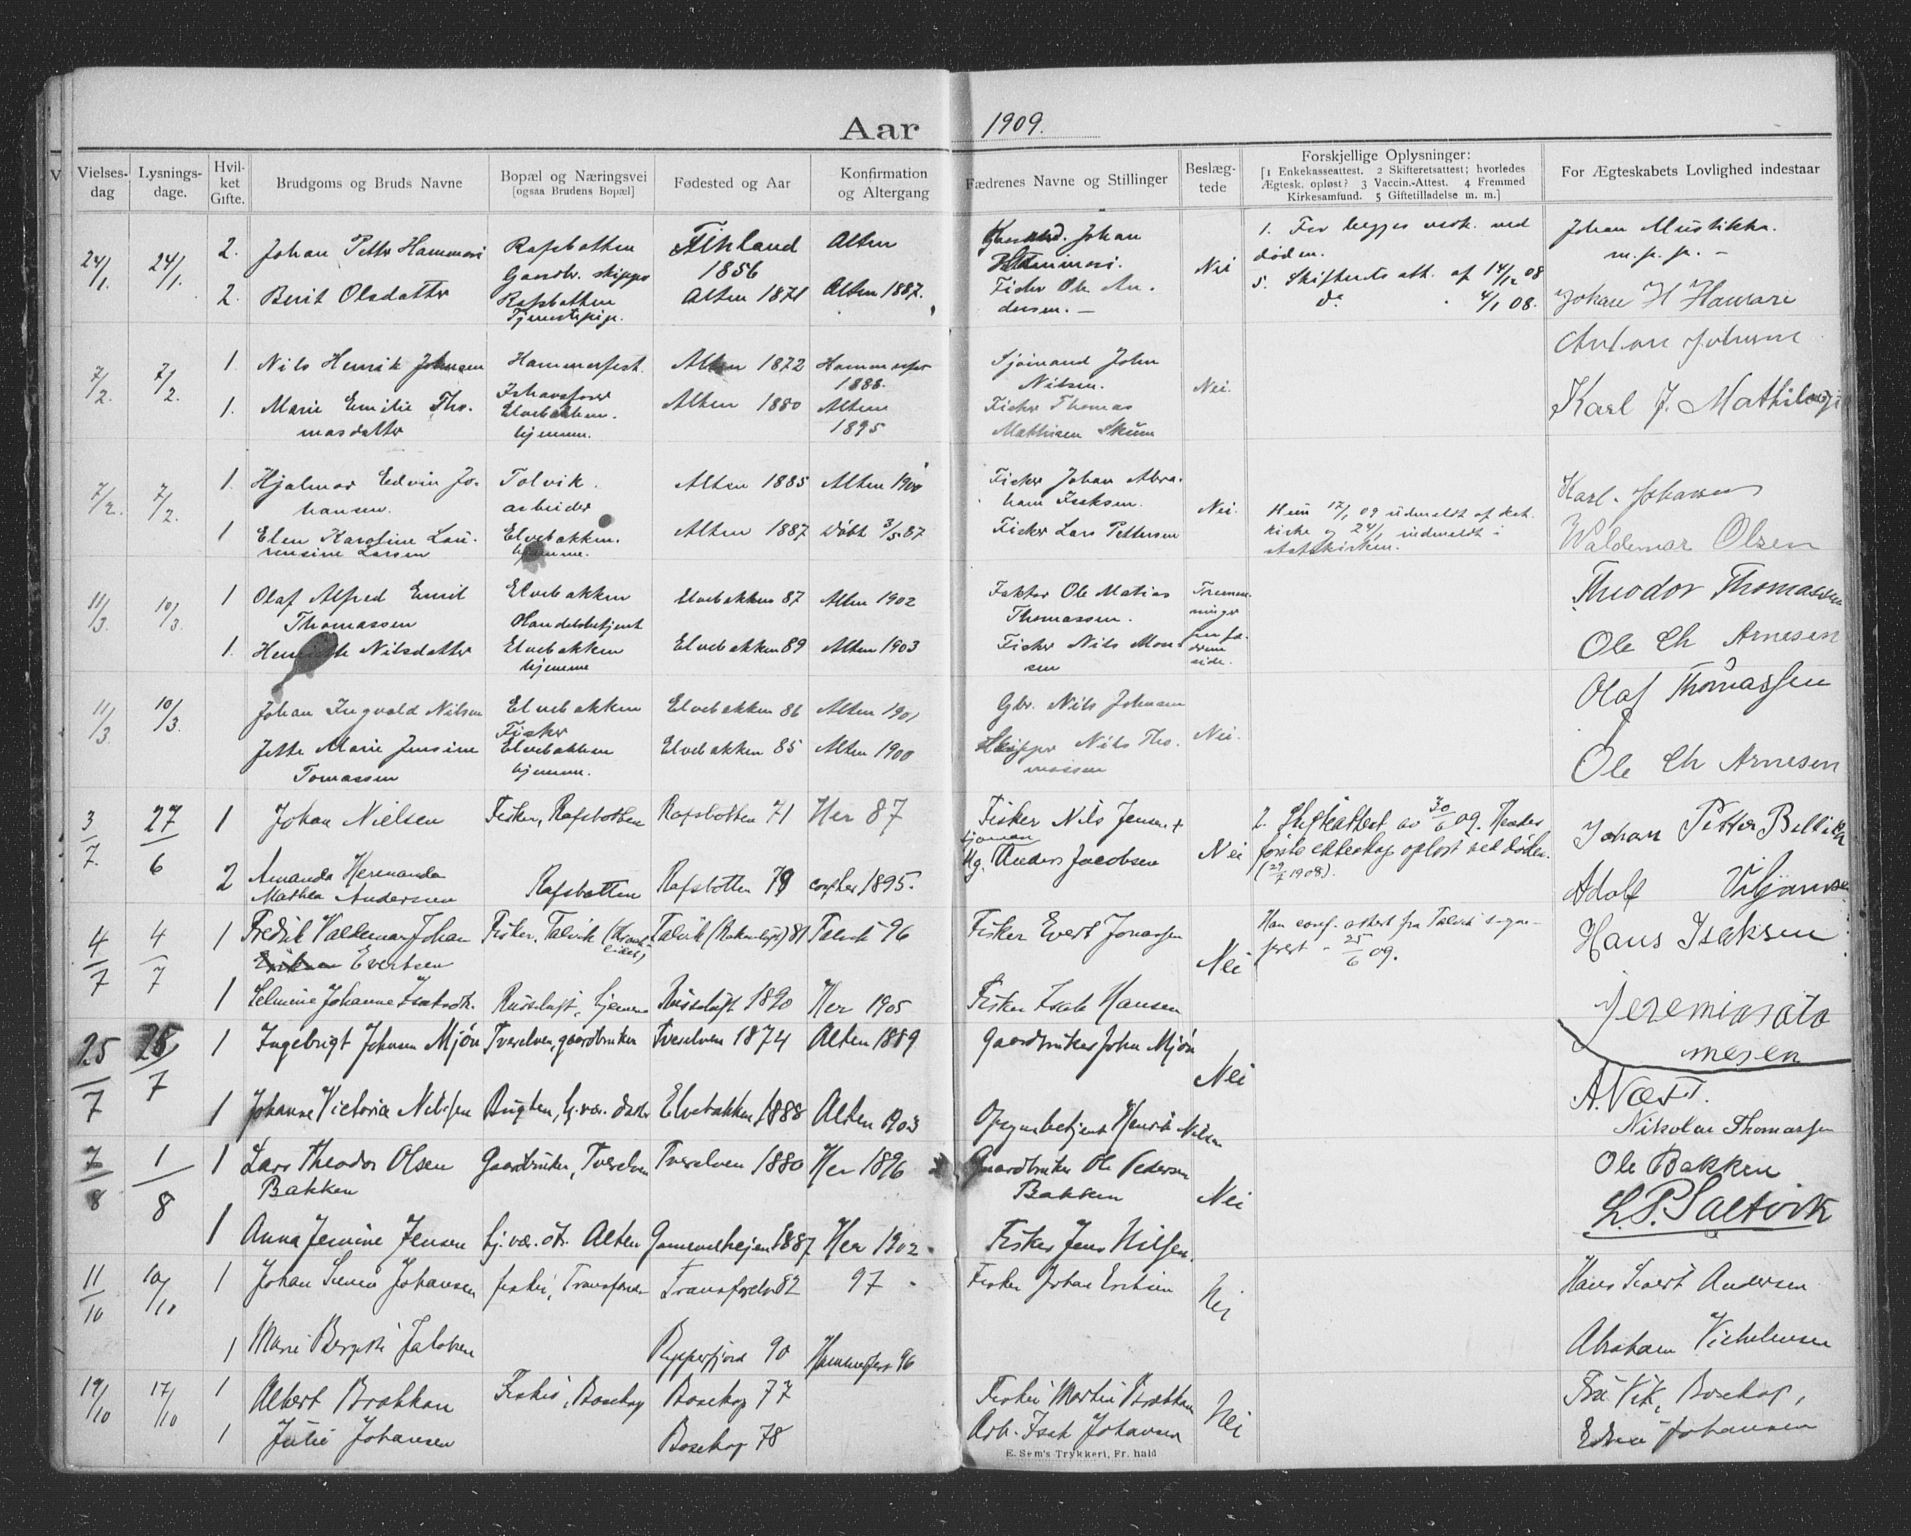 Aar 1909.
Vielses-dag
Lysnings-dage.
Hvil-ket Gifte.
Brudgoms og Bruds Navne
Bopæl og Næringsvei [ogsaa Brudens Bopæl]
Fødested og Aar
Konfirmation og Altergang
Fædrenes Navne og Stillinger
Beslæg-tede
Forskjellige Oplysninger: [1 Enkekasseattest. 2 Skifteretsattest; hvorledes Ægtesk. opløst? 3 Vaccin.-Attest. 4 Fremmed Kirkesamfund. 5 Giftetilladelse m. m.]
For Ægteskabets Lovlighed indestaar
24/1 24/1 2. Johan Petter Hammari Rafsbotten Finland 1856 Alten Johan Nei 1. For begges vedk. ved døden. Johan Mustikka. m. p. p. -
2. Berit Olsdatter Rafsbotten Tjenestepige. Alten 1871 Alten 1887. Fisker Ole An-dersen. - 5. Skifterets att. af 14/12 08 do 4/1 08. Johan H Hamari
7/2. 7/2. 1. Nils Henrik Johnsen Hammerfest. Alten 1872 Hammerfest 1888. Sjømand John Nilsen. Nei. Anton Johnsen
1. Marie Emilie Tho-masdatter Elvebakken. hjemme. Alten 1880 Alten 1895 Fisker Thomas Mathisen Skum Karl J. Mathilasji
7/2. 7/2. 1. Hjalmar Edvin Jo-hansen. Talvik. arbeider Alten 1885 Alten 1900 Fisker Johan Abra-ham Isaksen. Nei. Karl Johansen
1 Elen Karoline Lau-rensine Larsen Elvebakken. hjemme. Alten 1887 Døbt 3/5 87 Fisker Lars Pettersen Hun 17/1 09 udmeldt af kat. kirke og 24/1 indmeldt i statskirken. Waldemar Olsen
11/3. 10/3. 1 Olaf Alfred Emil Thomassen Elvebakken Handelsbetjent Elvebakken 87 Alten 1902 Faktor Ole Matias Thomassen. Tremen-ninger Theodor Thomassen
1. Henriette Nilsdatter Elvebakken hjemme Elvebakken 89 Alten 1903 Fisker Nils Mon-sen Ole Ch Arnesen
11/3. 10/3. Johan Ingvald Nilsen Elvebakken Fisker Elvebakken 86 Alten 1901 Gbr. Nils Johnsen Nei. Olaf Thomassen
Jette Marie Jensine Tomassen Elvebakken hjemme. Elvebakken 85 Alten 1900 Skipper Nils Tho-massen Ole Ch Arnesen
3/7. 27/6 1 Johan Nielsen Fisker, Rafsbotten Rafsbotten 71 Her 87 Fisker Nils Jensen Nei 2. Skifteattest av 30/6 09. Hendes første ekteskap opløst ved døden. (29/7 1908). Johan Petter Beltich
2 Amanda Hermanda Mathea Andersen Rafsbotten Rafsbotten 79 conf. her 1895. Anders Jacobsen Adolf Viljamsen
4/7 4/7 1 Fredrik Valdemar Johan Evertsen Fisker, Talvik Talvik 81 Talvik 96 Fisker Evert Jonassen Nei Han conf. attest fra Talvik 25/6 09. Hans Isaksen
1 Selmine Johanne Isaksdtr. Russeluft, hjemme Russeluft 1890 Her 1905 Fisker Isak Hansen Jeremias
25/7 25/7 1 Ingebrigt Johnsen Mjøn Tverelven, gaardbruker Tverelven 1874 Alten 1889 Gaardbruker John Mjøn Nei A. Næss.
1 Johanne Victoria Nilssen Bugten, hj. vær. datter Elvebakken 1888 Alten 1903 Opsynsbetjent Henrik Nilsen Nikolai Thomassen
7/8 1/8 1 Lars Theodor Olsen Bakken Gaardbruker, Tverelven Tverelven 1880 Her 1896 Gaardbruker Ole Pedersen Bakken Nei Ole Bakken
1 Anna Jensine Jensen hj. vær. dtr. Alten 1887 Her 1902. Fisker Jens Nilssen. L. P. Saltvik
11/10 10/10 1 Johan Johansen fisker, Transfarelv Transfarelv 82 97 Fisker Johan Eriksen Nei Hans Sivert Andersen
1 Marie Jakobsen Repparfjord 90 Hammerfest 96 Abraham Vilhelmsen
19/10 17/10 1 Albert Brækkan Fisker, Bosekop Bosekop 77 Fisker Martin Brækkan Nei Vik, Bosekop,
1 Julie Johansen Bosekop 78 Arb. Isak Johansen Johansen
E. Sem's Trykkeri, Fr. hald